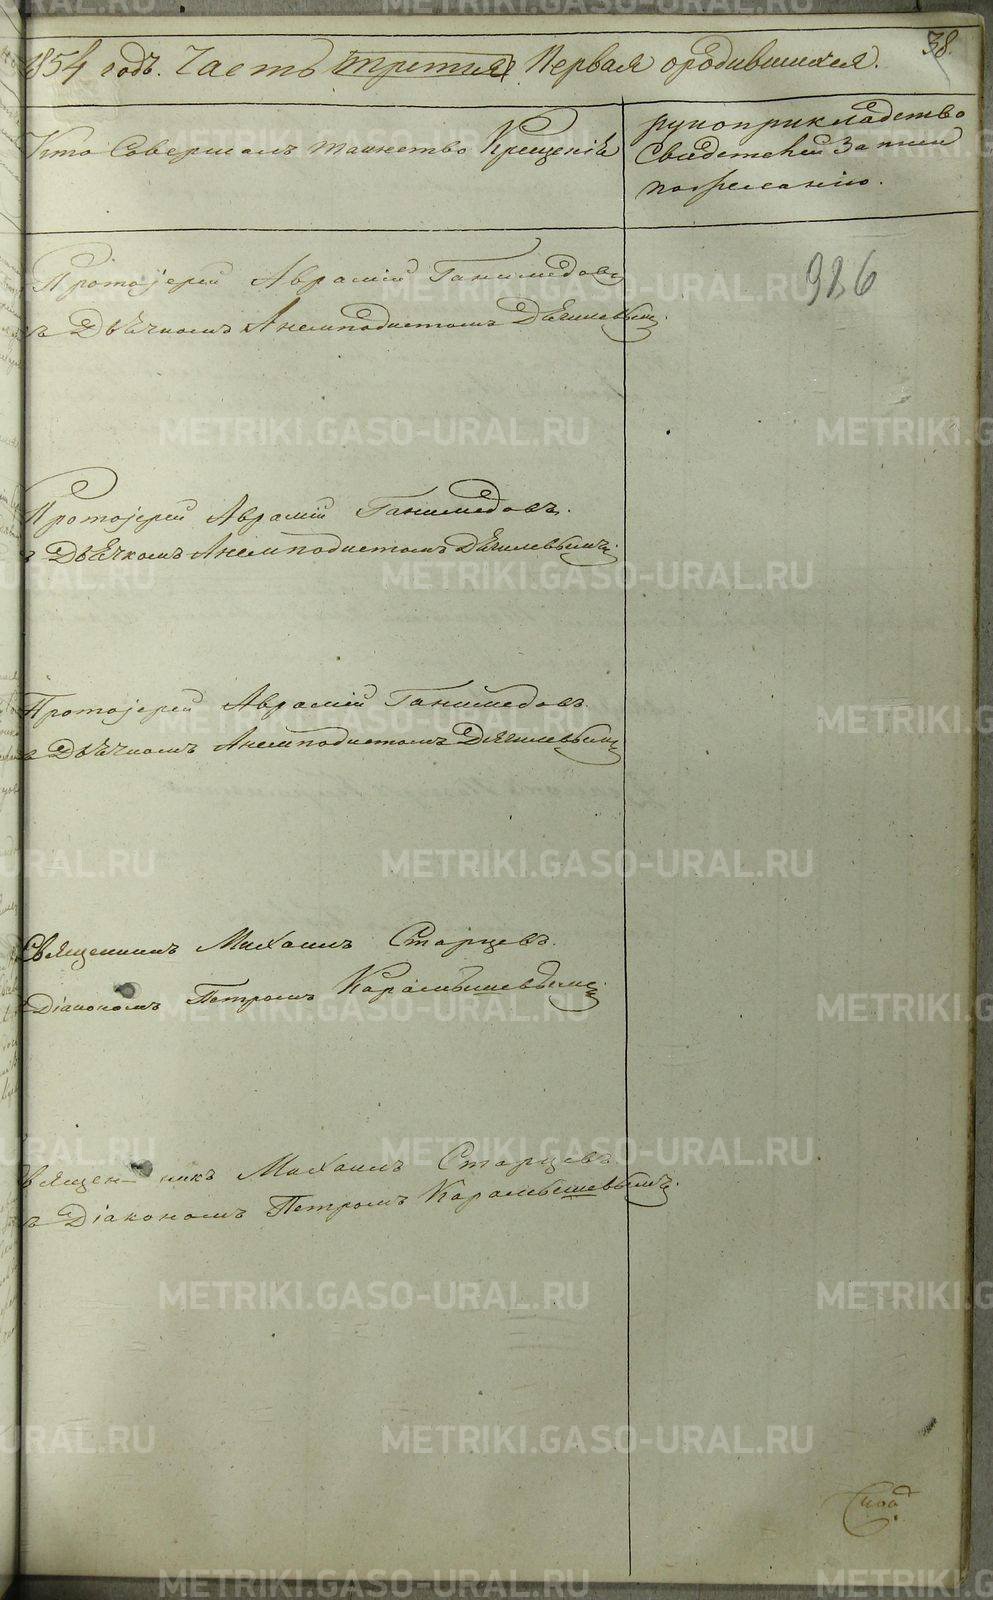 38.
1854 годъ. Часть третья Первая ородившихся.
Кто Совершалъ таинство Крещенія
рукоприкладство
Свидетелей Записи
по желанію.
Протоіерей Аврамій Ганимедовъ
съ Дьячкомъ Анемподистомъ Дягилевымъ.
986
Протоіерей Аврамій Ганимедовъ.
съ Дьячкомъ Анемподистомъ Дягилевымъ.
Протоіерей Аврамій Ганимедовъ
съ Дьячкомъ Анемподистомъ Дягилевымъ
Священникъ Михаилъ Старцевъ.
Діакономъ Петромъ Карамышевымъ.
Священ- никъ Михаилъ Старцевъ
съ Діакономъ Петромъ Карамышевымъ.
METRIKI.GASO-URAL.RU